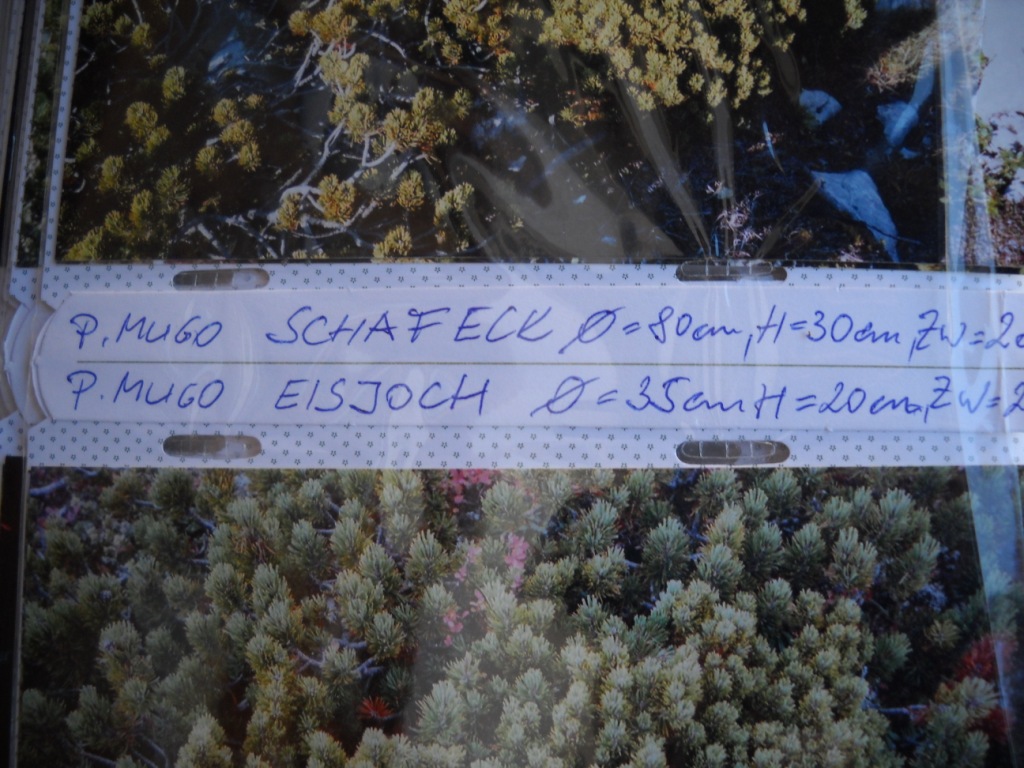 P. MUGO SCHAFECK Ø = 80 cm, H = 30 cm, ZW = 2
P. MUGO EISJOCH Ø = 35 cm H = 20 cm, ZW = 2